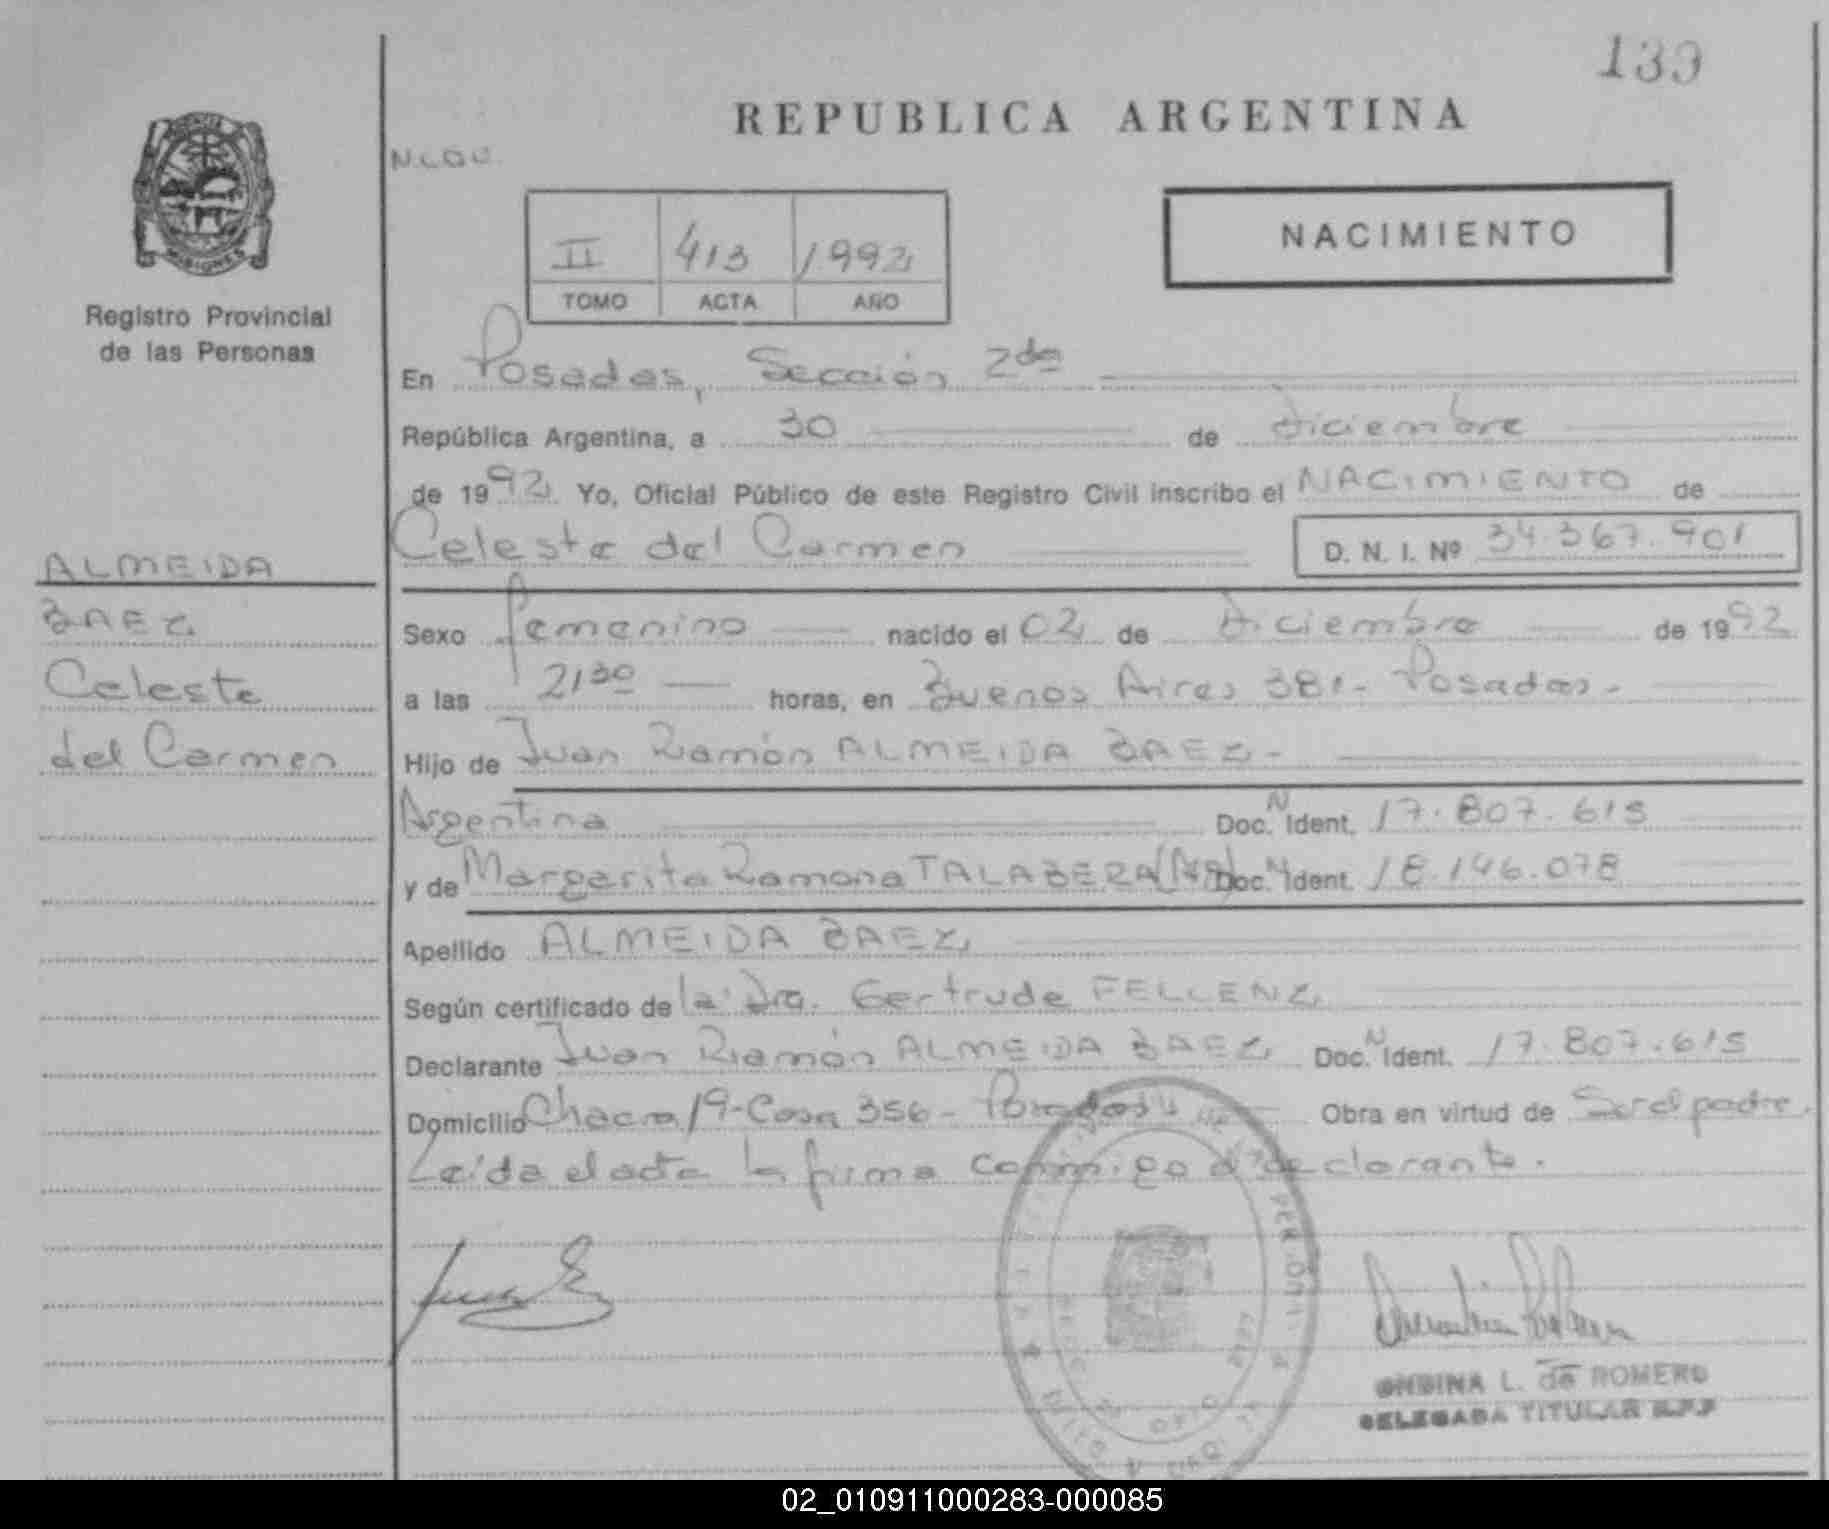 133
REPUBLICA ARGENTINA
MISIONES
Registro Provincial
de las Personas
II 413 1992
TOMO ACTA AÑO
NACIMIENTO
En Posadas, Sección 2da
República Argentina, a 30 de diciembre
de 1992 Yo, Oficial Público de este Registro Civil inscribo el NACIMIENTO de
Celeste del Carmen D. N. I. Nº 34.367.901
ALMEIDA
BAEZ
Celeste
del Carmen
Sexo femenino nacido el 02 de Diciembre de 1992
a las 21 30 horas, en Buenos Aires 381- Posadas-
Hijo de Juan Ramón ALMEIDA BAEZ-
Argentina Doc. N Ident. 17.807.615
y de Margarita Ramona TALABERA Doc. N Ident. 18.146.078
Apellido ALMEIDA BAEZ
Según certificado de la Dra. Gertrude FELLENZ
Declarante Juan Ramón ALMEIDA BAEZ Doc. N Ident. 17.807.615
Domicilio Chacra 19-Casa 356- Posadas Obra en virtud de Ser el padre.
Leída el acta la firma conmigo el declarante.
ONDINA L. de ROMERO
DELEGADA TITULAR R.P.P
02_010911000283-000085